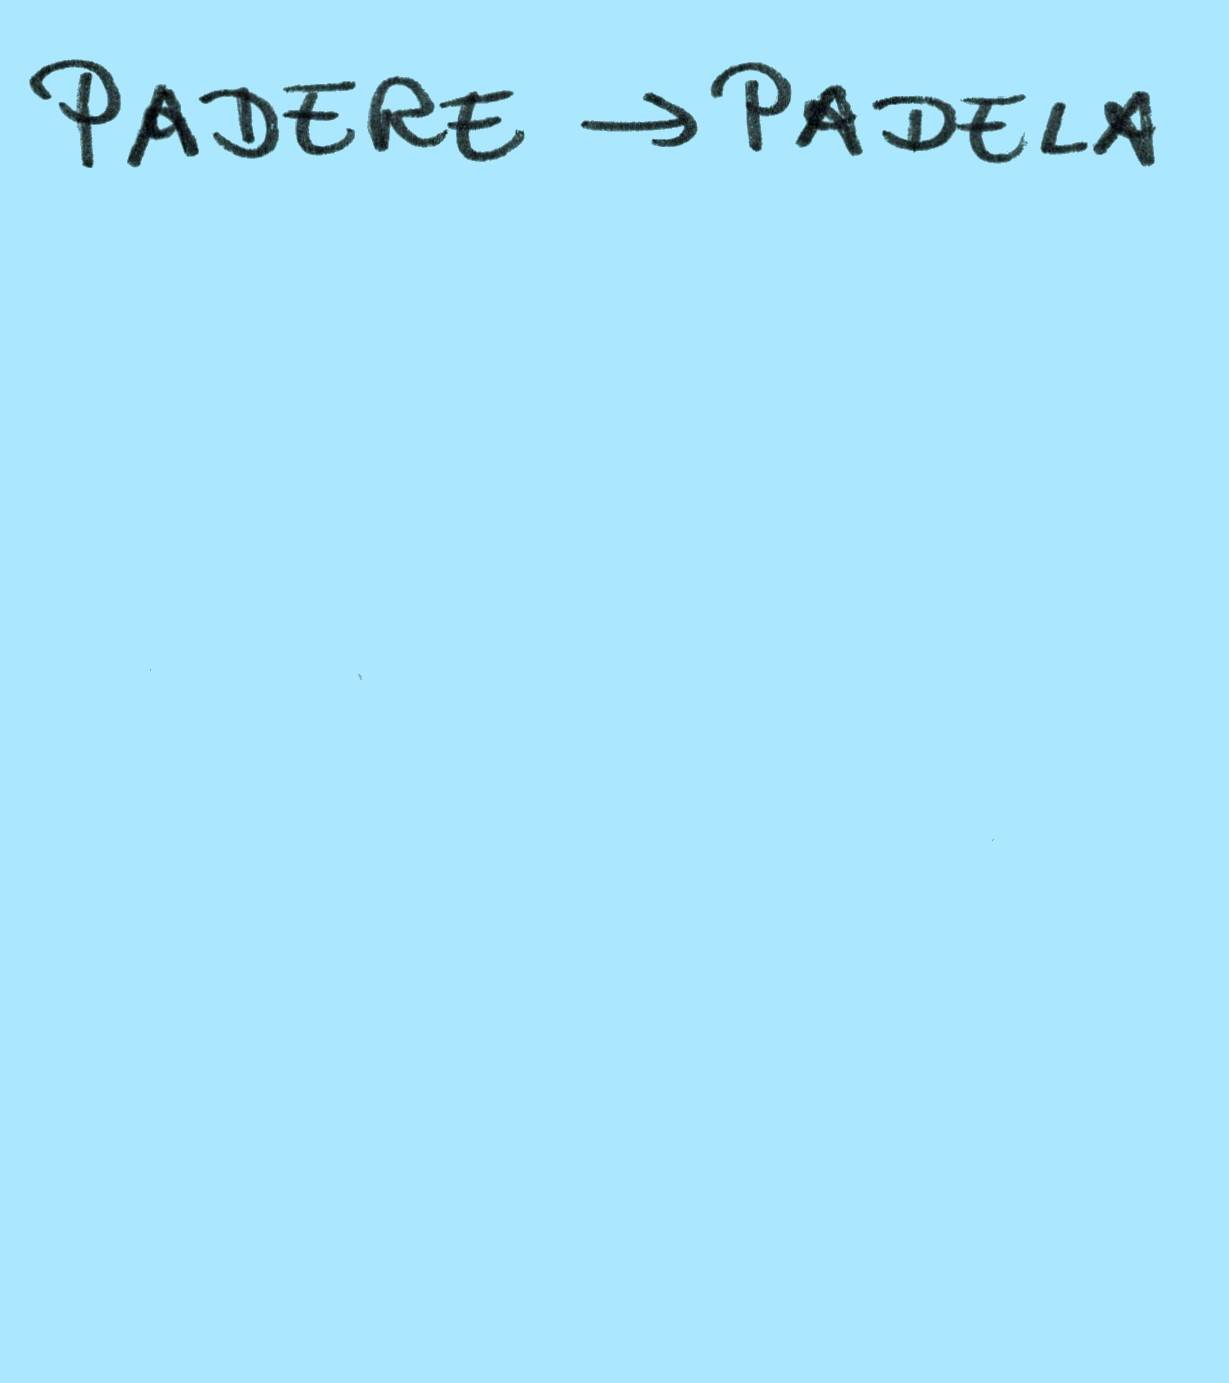 PADERE → PADELA